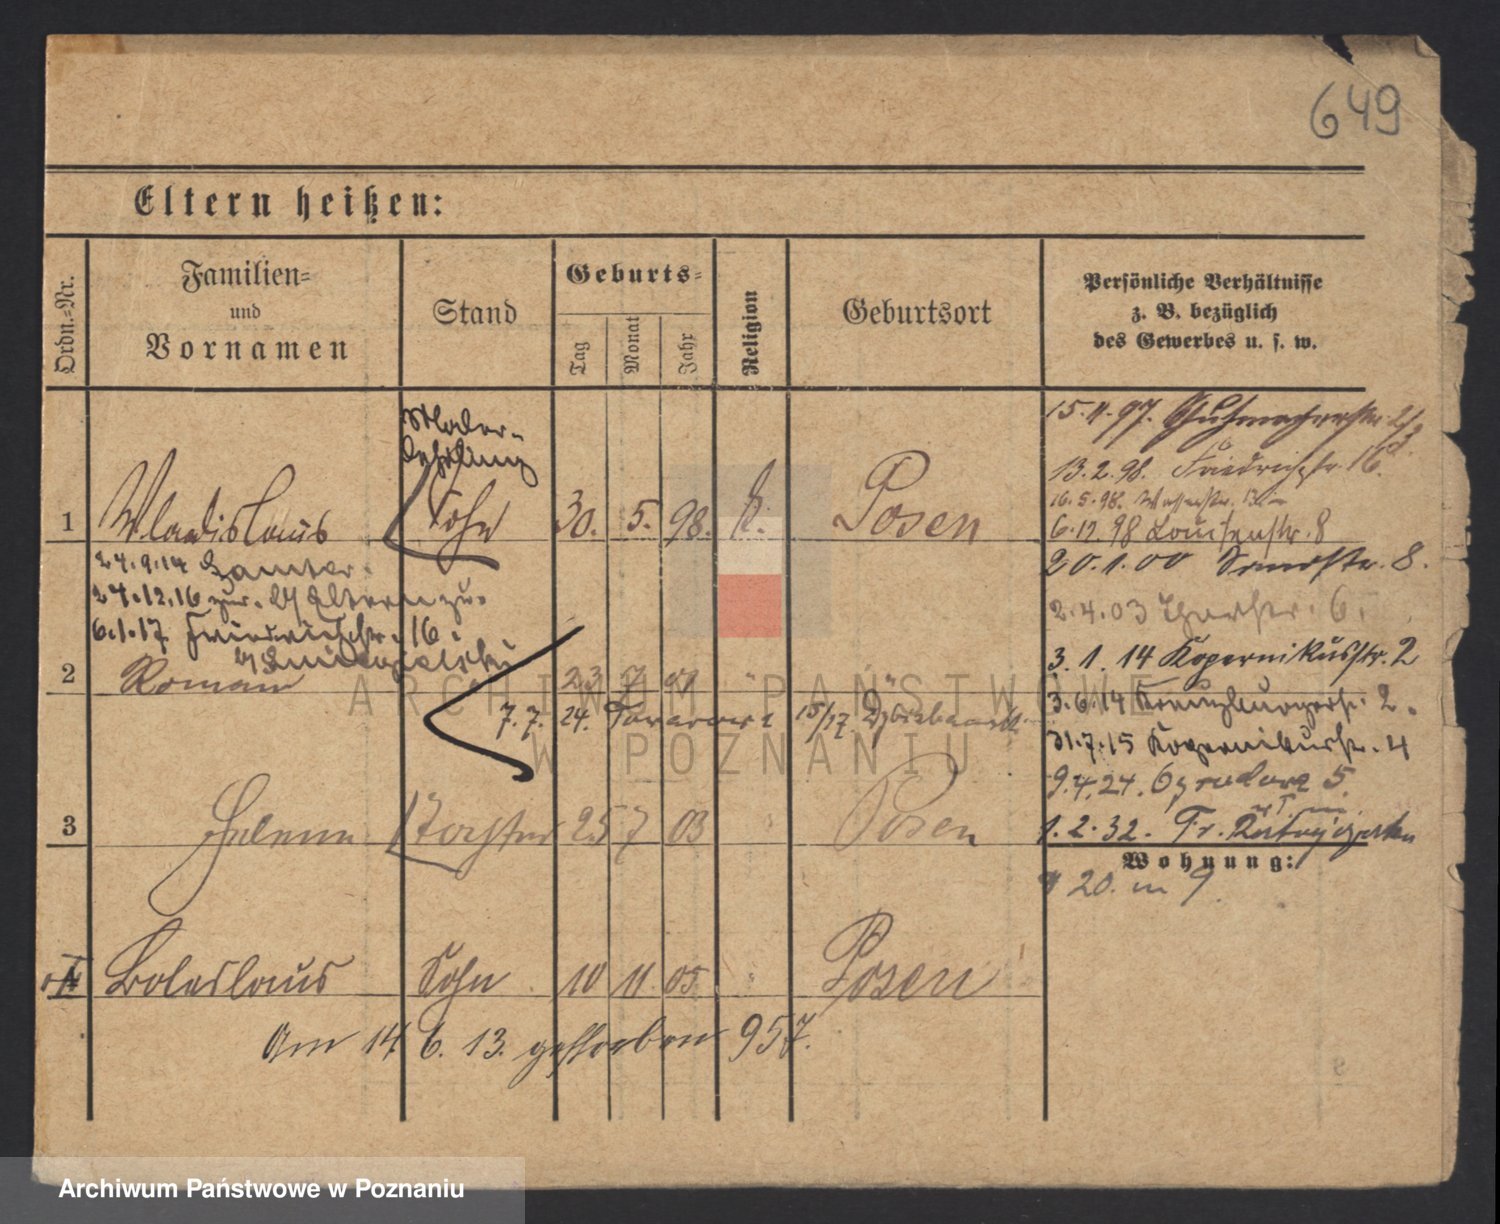 649
Eltern heißen:
Ordn.-Nr.
Familien-
und
Vornamen
Stand
Geburts-
Tag
Monat
Jahr
Religion
Geburtsort
Persönliche Verhältnisse
z. B. bezüglich
des Gewerbes u. s. w.
1 Wladislaus Sohn 30. 5. 98. k. Posen
24.9.14
24.12.16 zur.
6.1.17 Friedrichstr. 16.
2 Roman 23 7 01 " "
7.7. 24. 15/17.
3 Helene Tochter 25 7 03 Posen
4 Boleslaus Sohn 10 11 05 Posen
Am 14 6. 13. gestorben 957.
15.4.97.
13.2.98. Friedrichstr. 16.
16.5.98.
6.12.98 Louisenstr. 8
20.1.00 8.
2.4.03 6.
3.1.14 Kopernikusstr. 2
3.6.14 Kreuzburgerstr. 2.
31.7.15 Kopernikusstr. 4
9.4.24. Ogrodowa 5.
1.2.32. Fr. Ratajczaka
Wohnung:
20. m 9.
ARCHIWUM PAŃSTWOWE
W POZNANIU
Archiwum Państwowe w Poznaniu